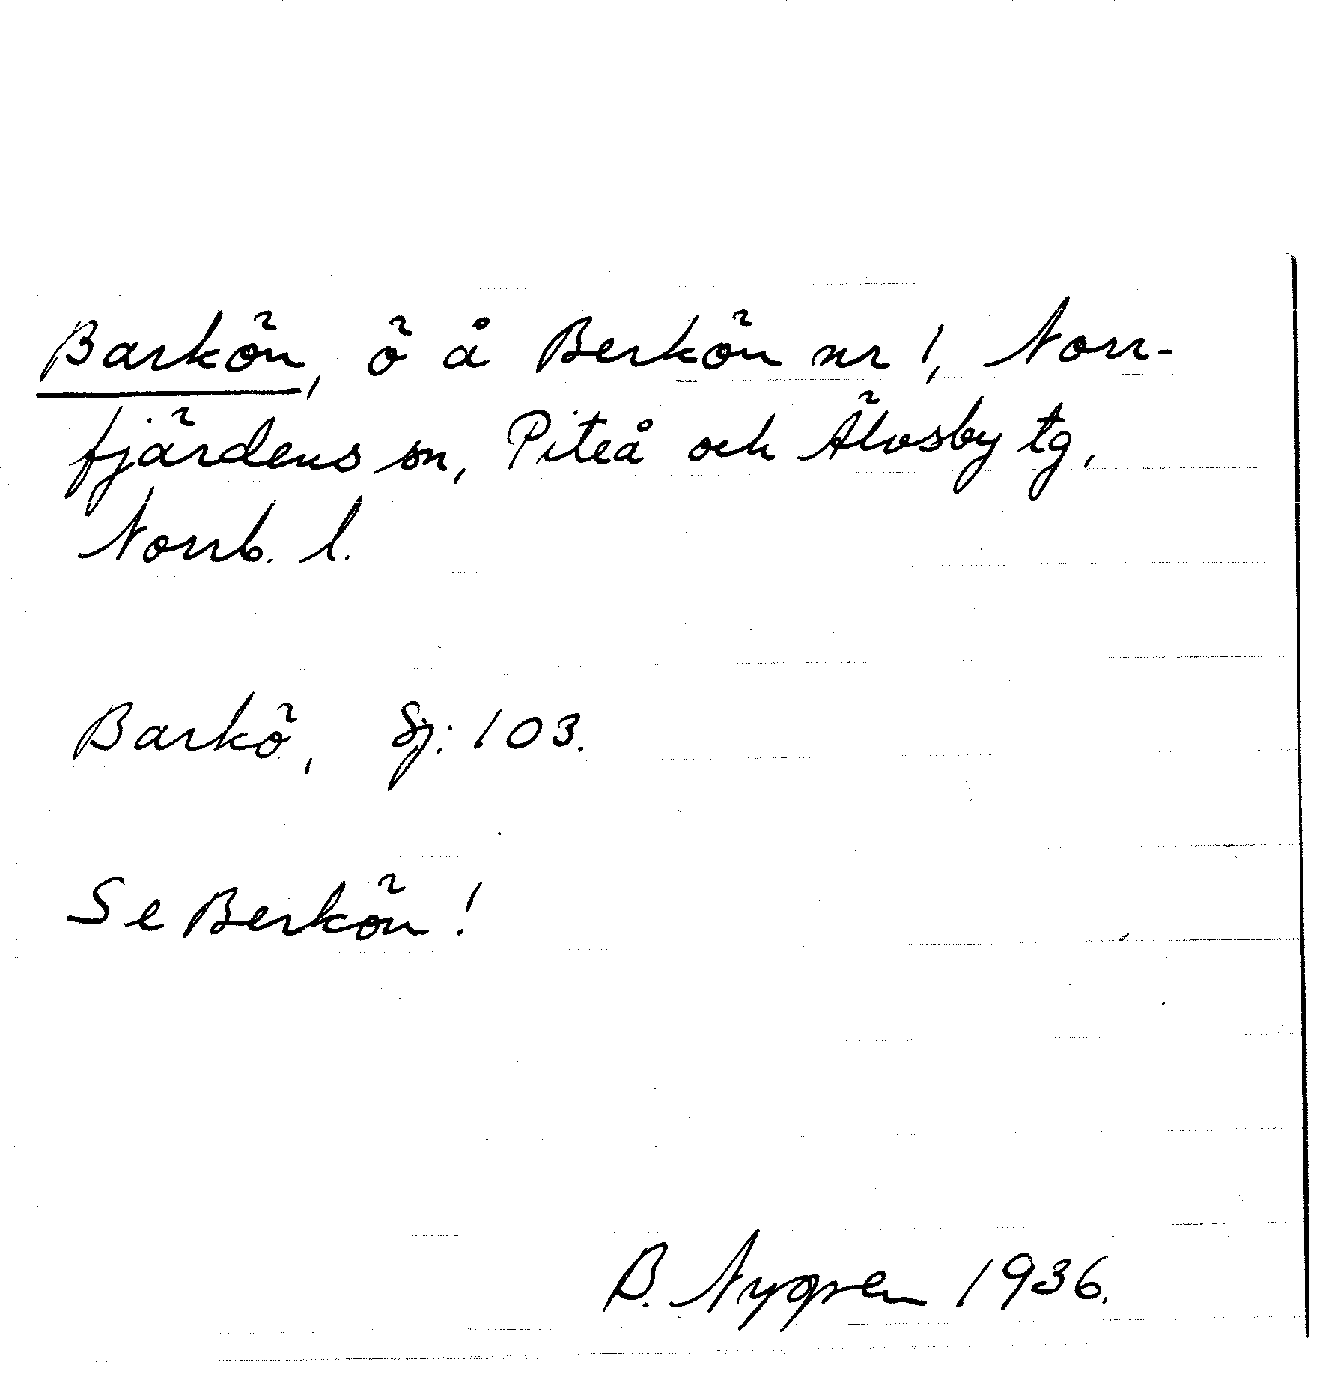 Barkön, ö å Berkön nr 1, Norr-
fjärdens sn, Piteå och Älvsby tg,
Norrb. l.
Barkö, Sj: 103.
Se Berkön!
B. Nygren 1936.